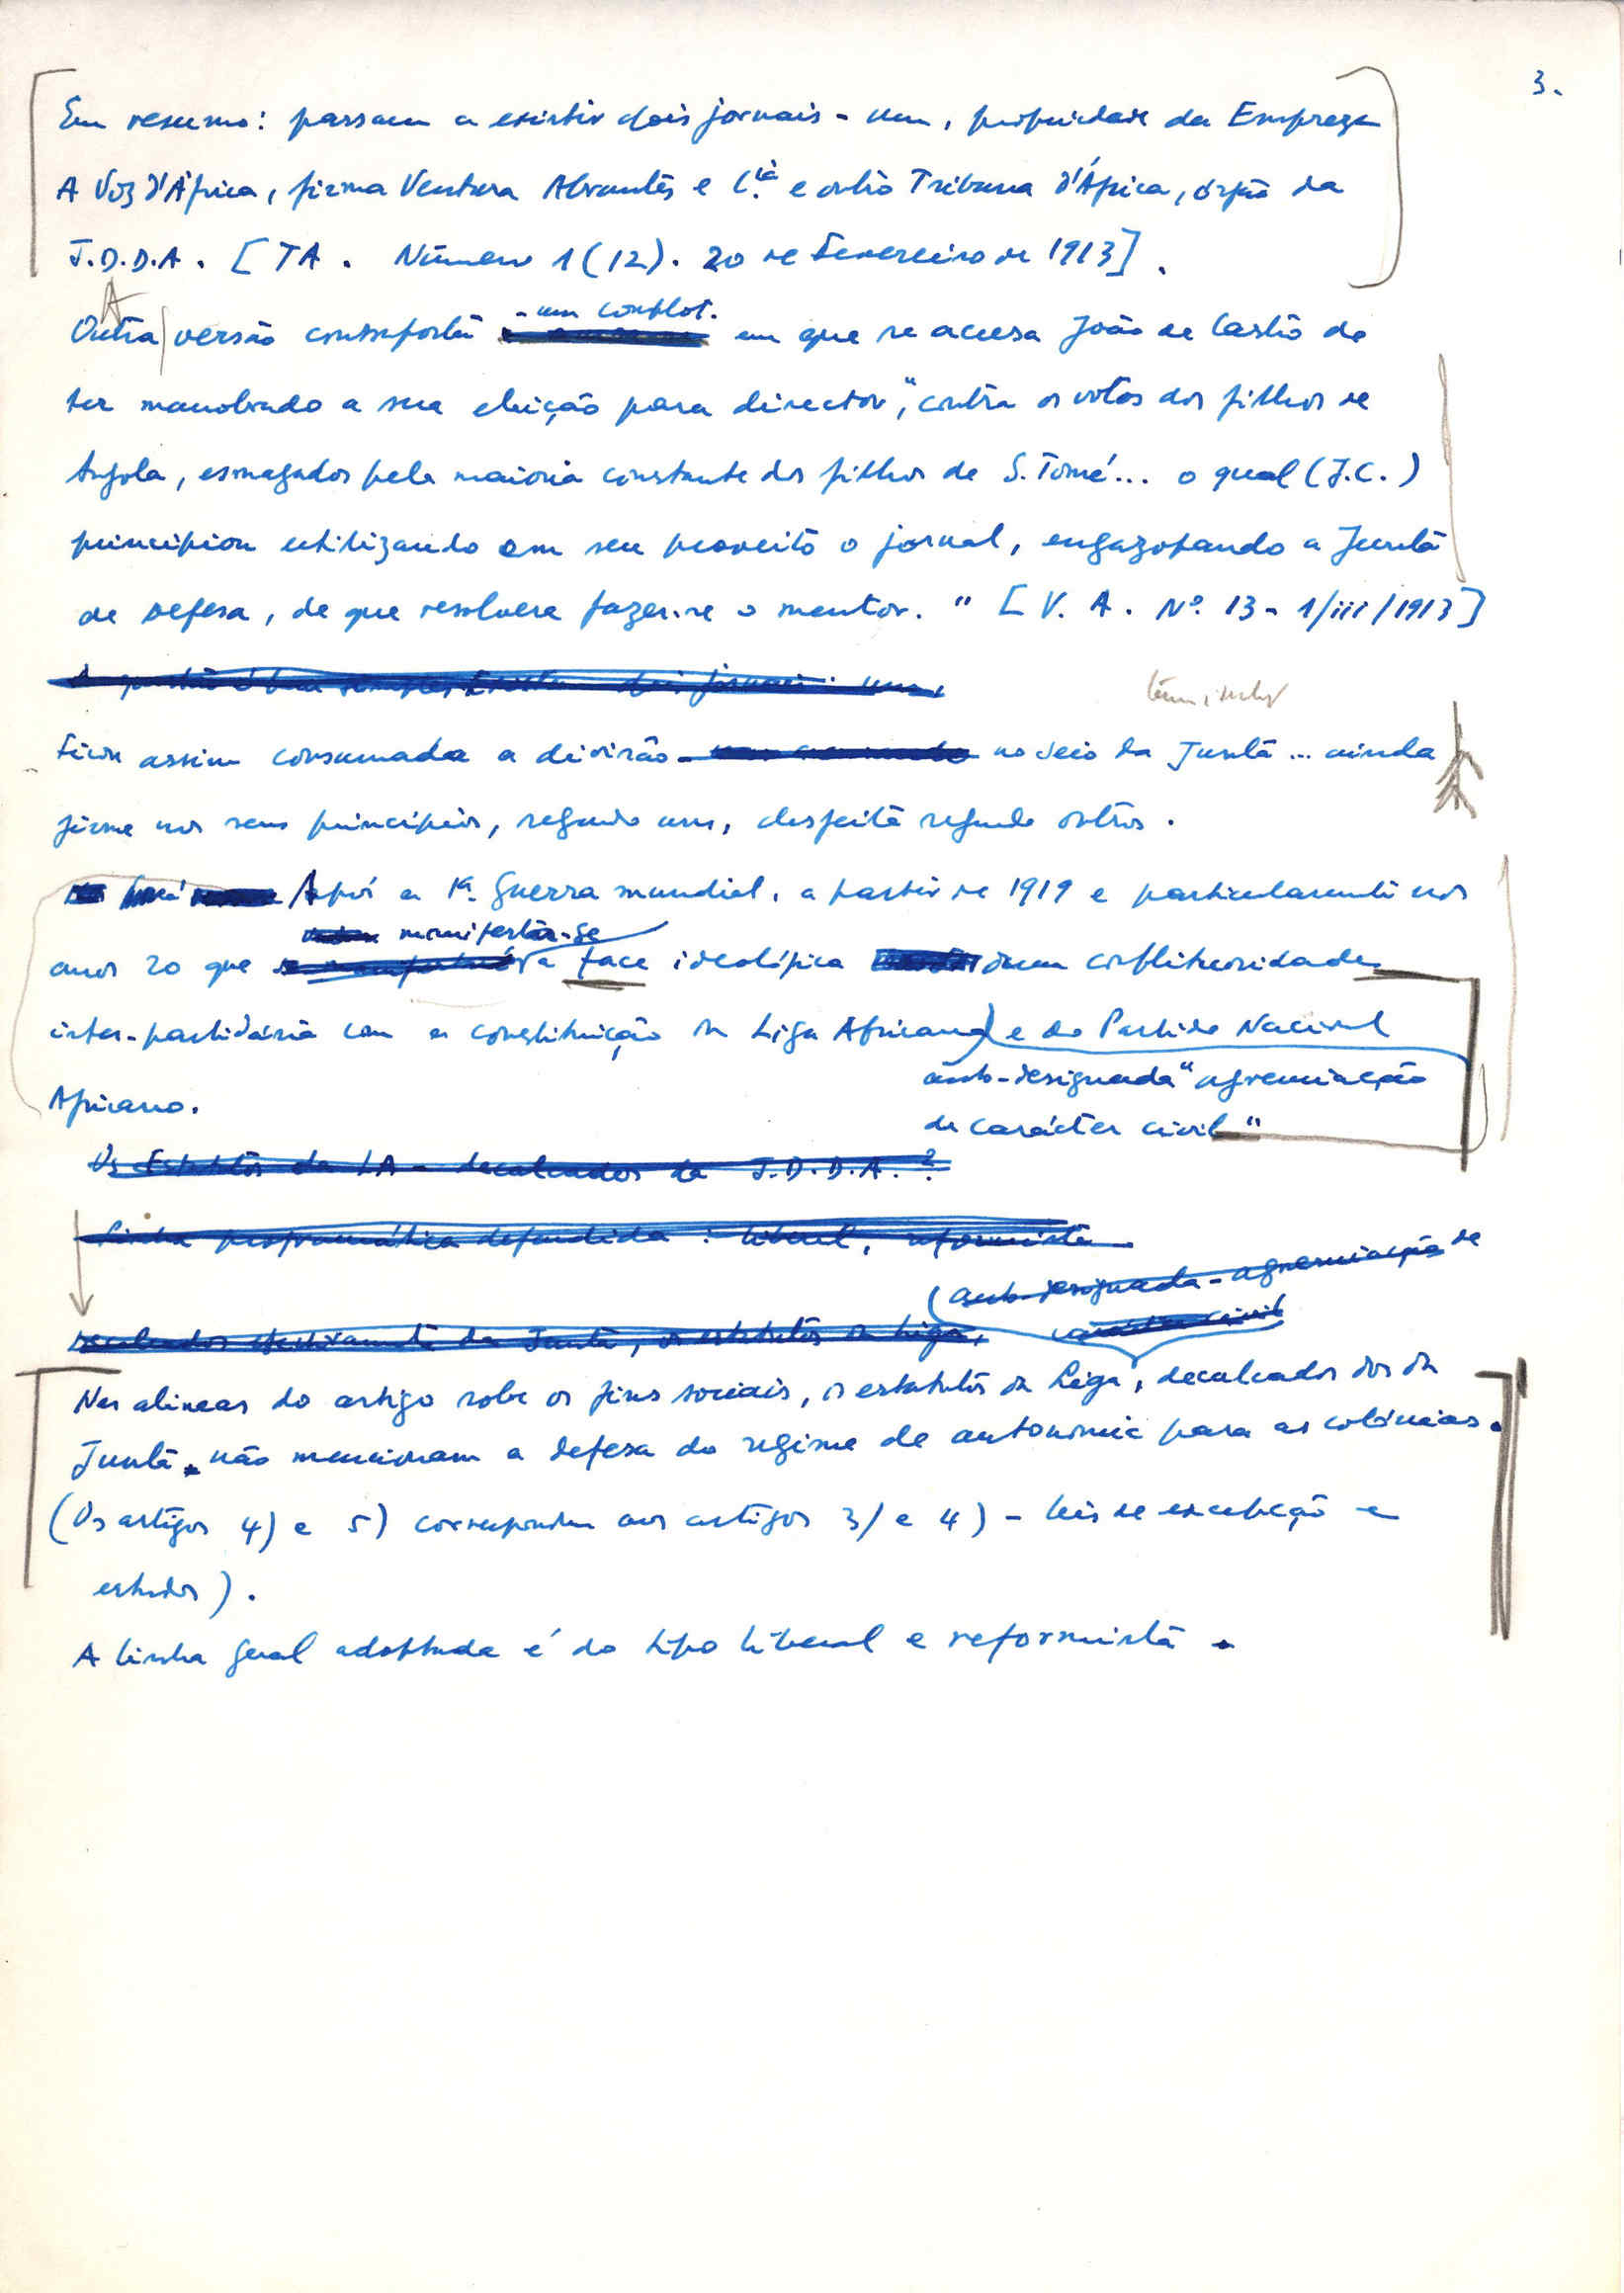 3.
Em resumo: passam a existir dois jornais - um, propriedade da Empreza
A Voz d'África, firma Ventura Abrantes e C.ia e outro Tribuna d'África, órgão da
J.D.D.A. [TA. Número 1 (12). 20 de Fevereiro de 1913].
A
Outra versão - um complot.
em que se acusa João de Castro de
ter manobrado a sua eleição para director, "contra os votos dos filhos de
Angola, esmagados pela maioria constante dos filhos de S. Tomé... o qual (J.C.)
principiou utilizando em seu proveito o jornal, engazopando a Junta
de Defesa, de que resolvera fazer-se o mentor." [V. A. Nº. 13 - 1/iii/1913]
A questão é dois jornais: um,
Ficou assim consumada a divisão no seio da Junta... ainda
firme nos seus principios, segundo uns, desfeita segundo outros.
Após a 1ª. Guerra mundial, a partir de 1919 e particularmente nos
manifestar-se
anos 20 que a face ideológica duma conflituosidade
inter-partidária com a constituição da Liga Africana e do Partido Nacional
auto-designada "agremiação
Africano.
de carácter civil"
Os Estatutos da LA - decalcados da J.D.D.A.?
Linha programática defendida: liberal, reformista
(auto-designada - agremiação de
decalcados da Junta, os estatutos da Liga, carácter civil
Nas alineas do artigo sobre os fins sociais, os estatutos da Liga, decalcados dos da
Junta não mencionam a defesa do regime de autonomia para as colónias.
(Os artigos 4) e 5) correspondem aos artigos 3) e 4) - leis de excepção e
estudos).
A linha geral adoptada é do tipo liberal e reformista.